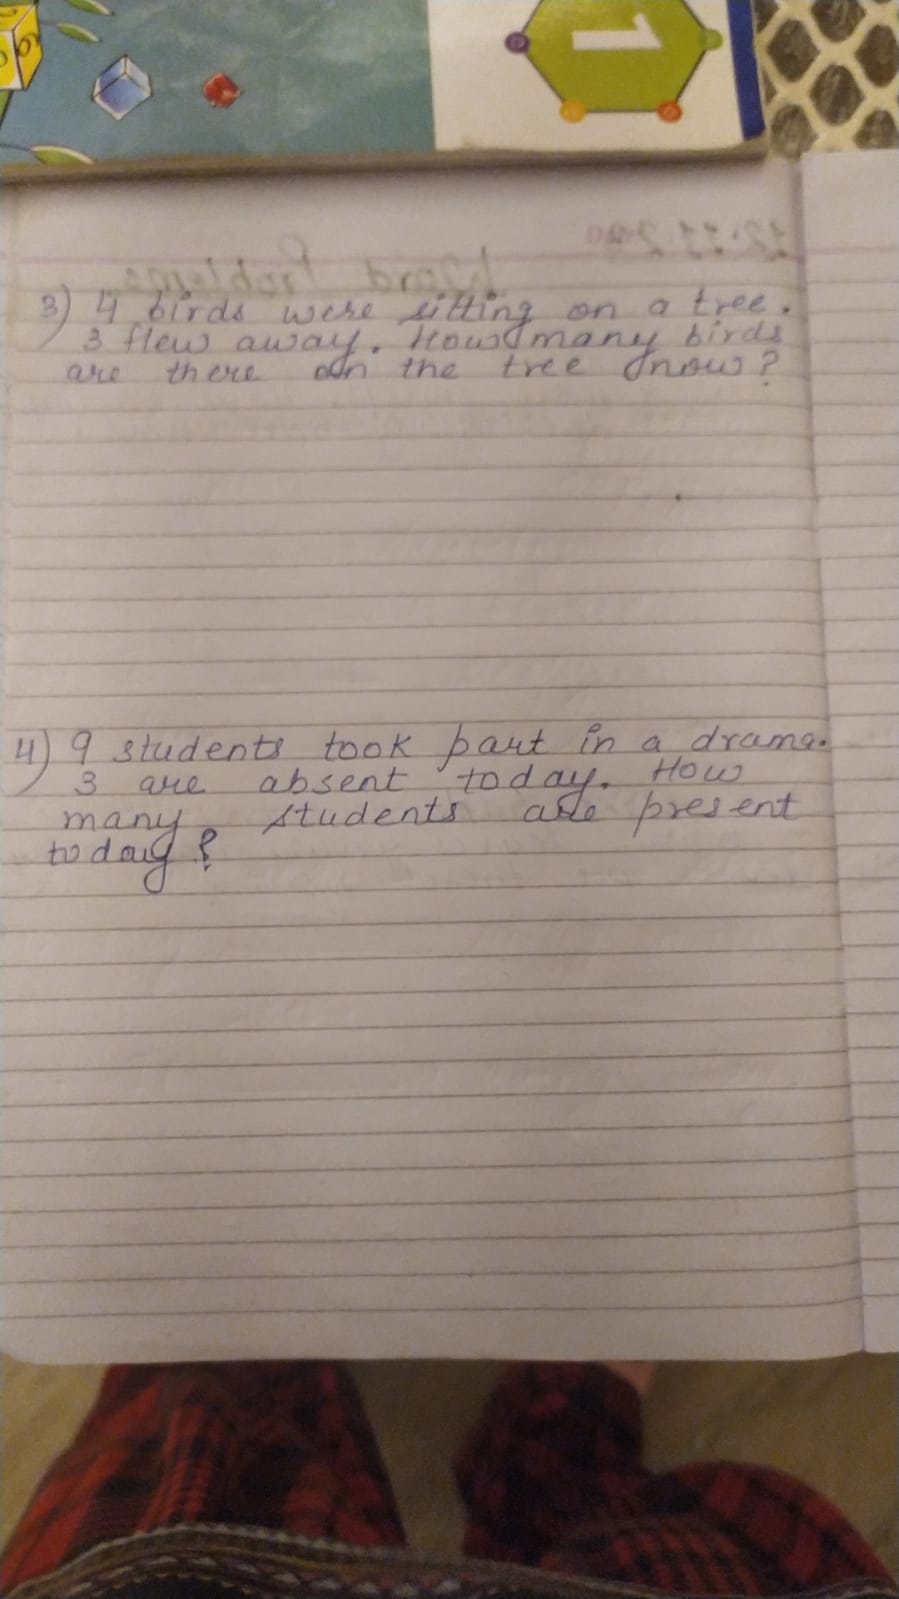 1
3) 4 birds were sitting on a tree.
3 flew away. How many birds
are there on the tree now?
4) 9 students took part in a drama.
3 are absent today. How
many students are present
today?